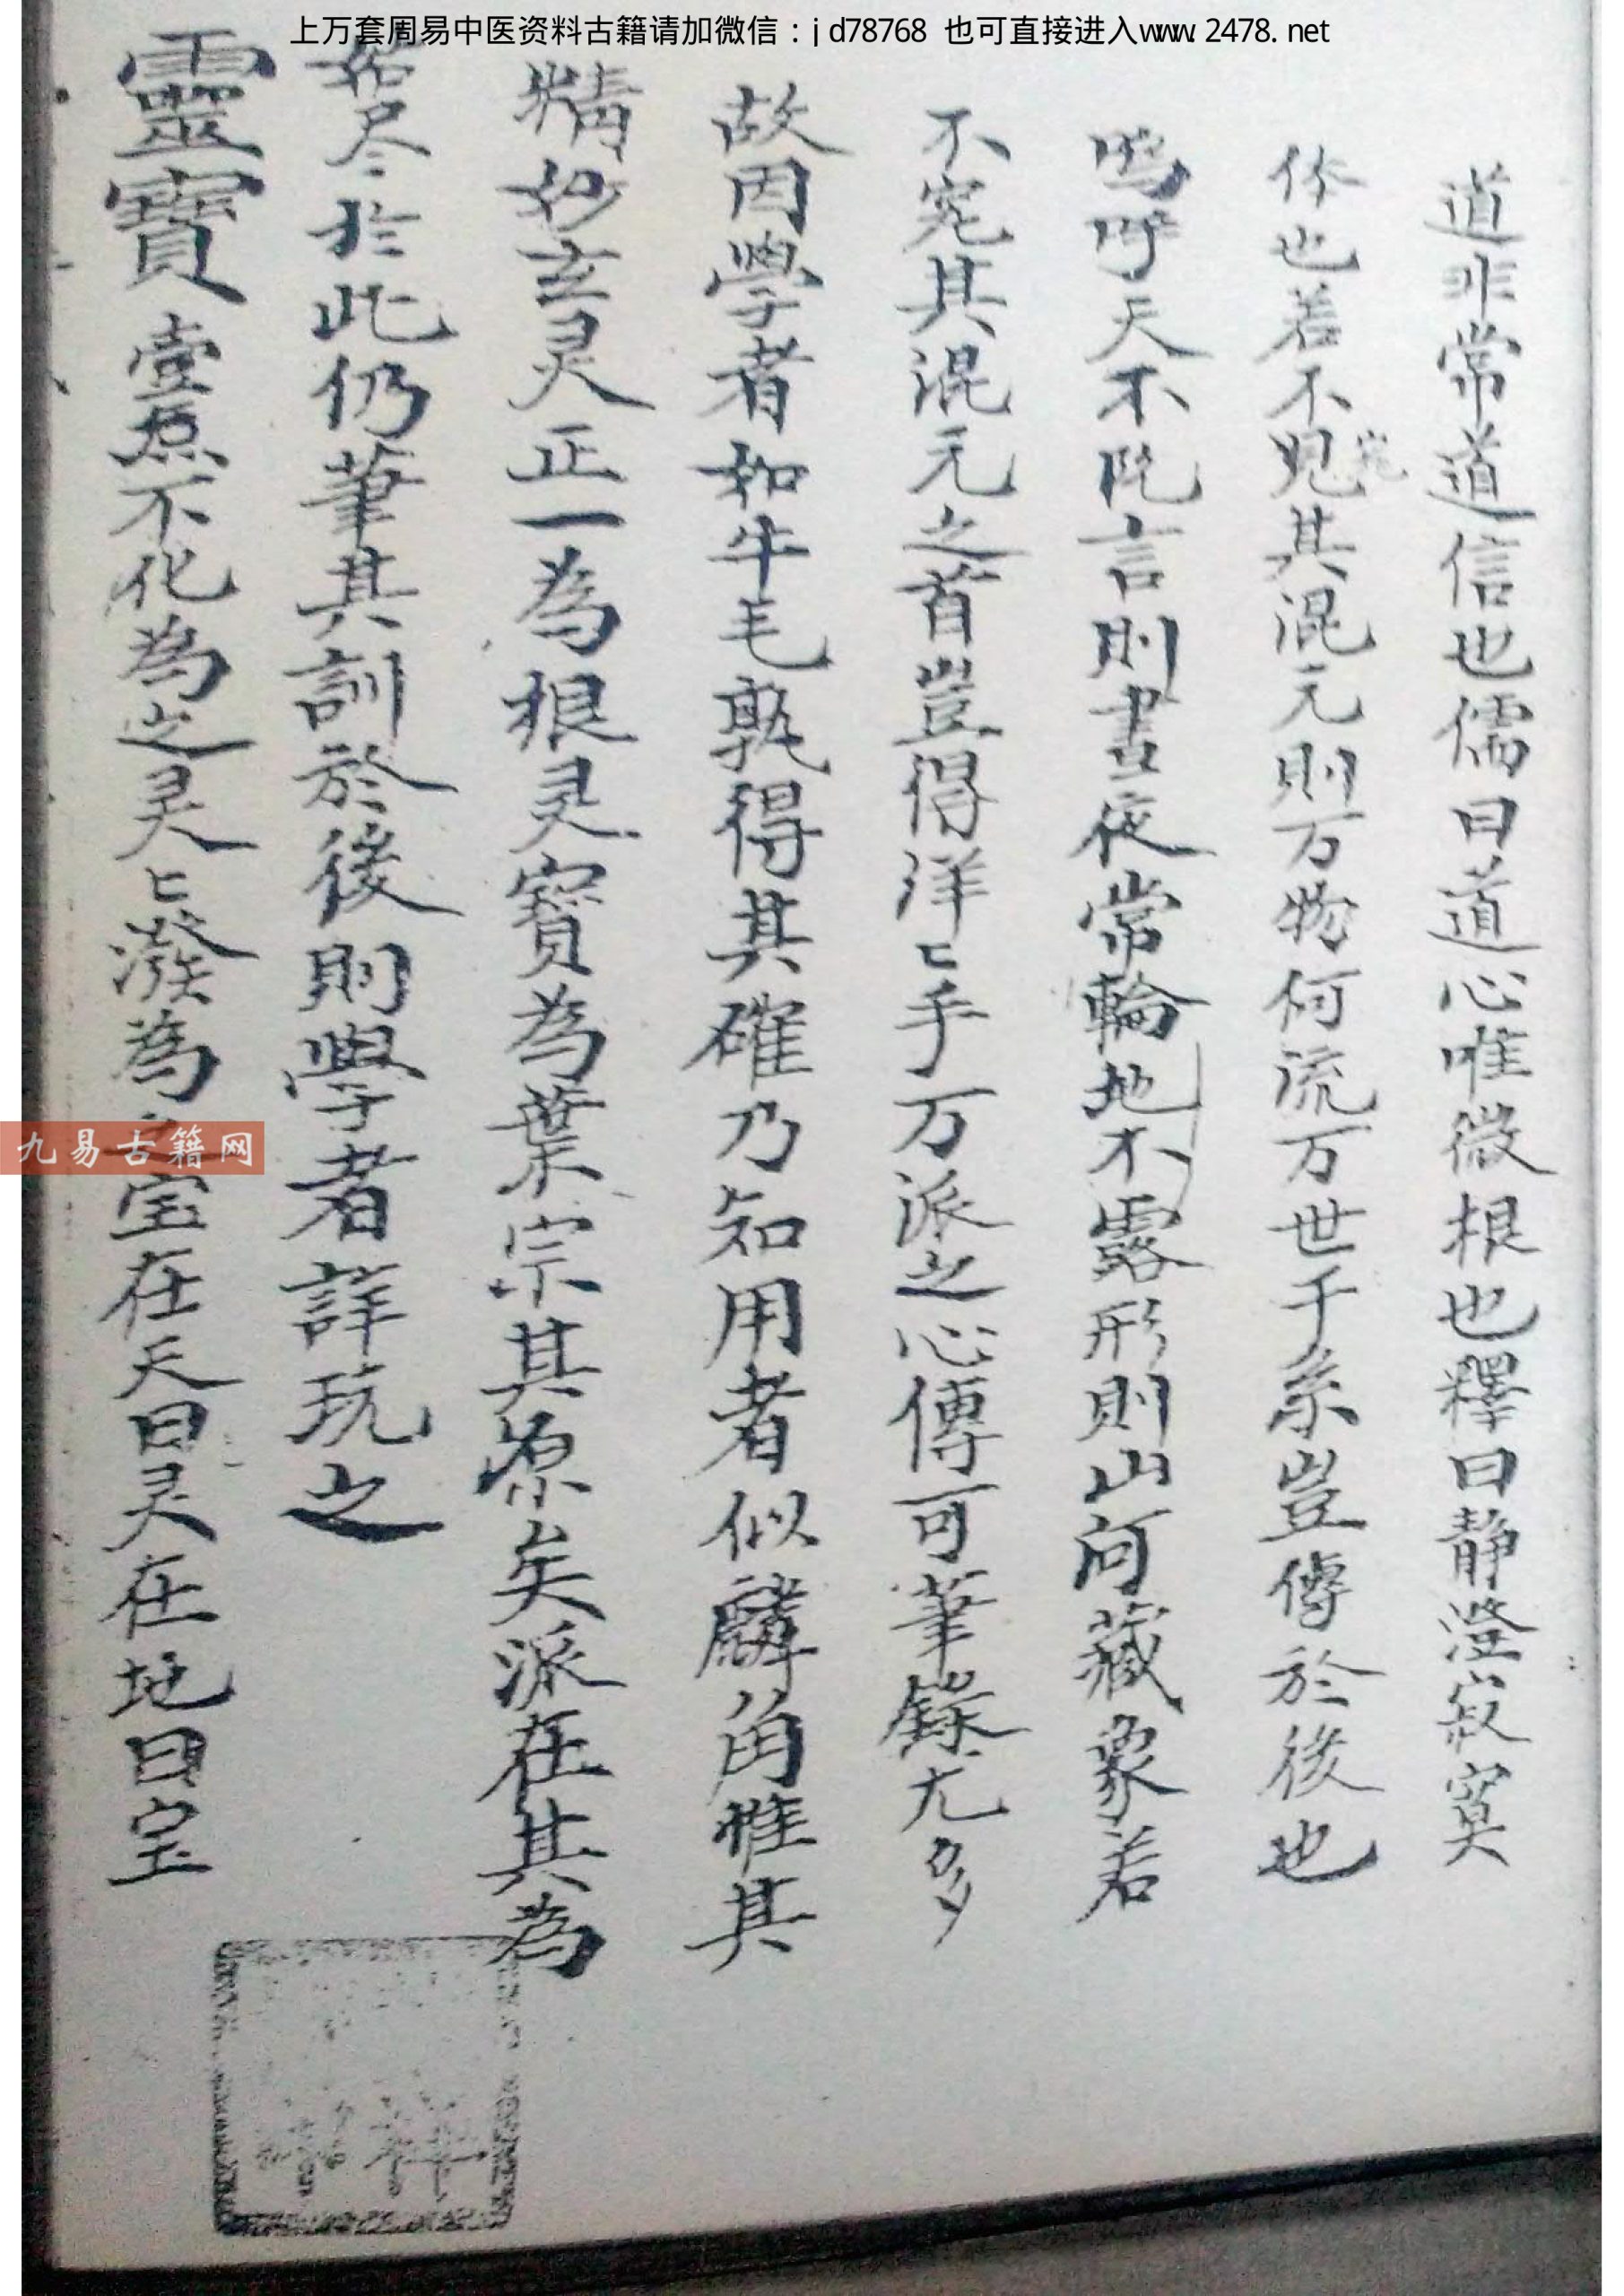 上万套周易中医资料古籍请加微信：jd78768 也可直接进入www.2478.net
道非常道信也儒曰道心唯微根也釋曰静澄寂寞
体也若不见其混元則万物何流万世千系豈傳於後也
究
嗚呼天不 言則晝夜常輪地不露形則山河藏象若
不究其混元之首豈得洋〻乎万派之心傳可筆錄尤多
故因學者如牛毛孰得其確乃知用者似麟角惟其
精妙玄灵正一為根灵寶為葉宗其源矣派在其為
始尽於此仍筆其訓於後則學者詳玩之
靈寶壹炁不化為之灵〻潑為 宝在天曰灵在地曰宝
九易古籍网